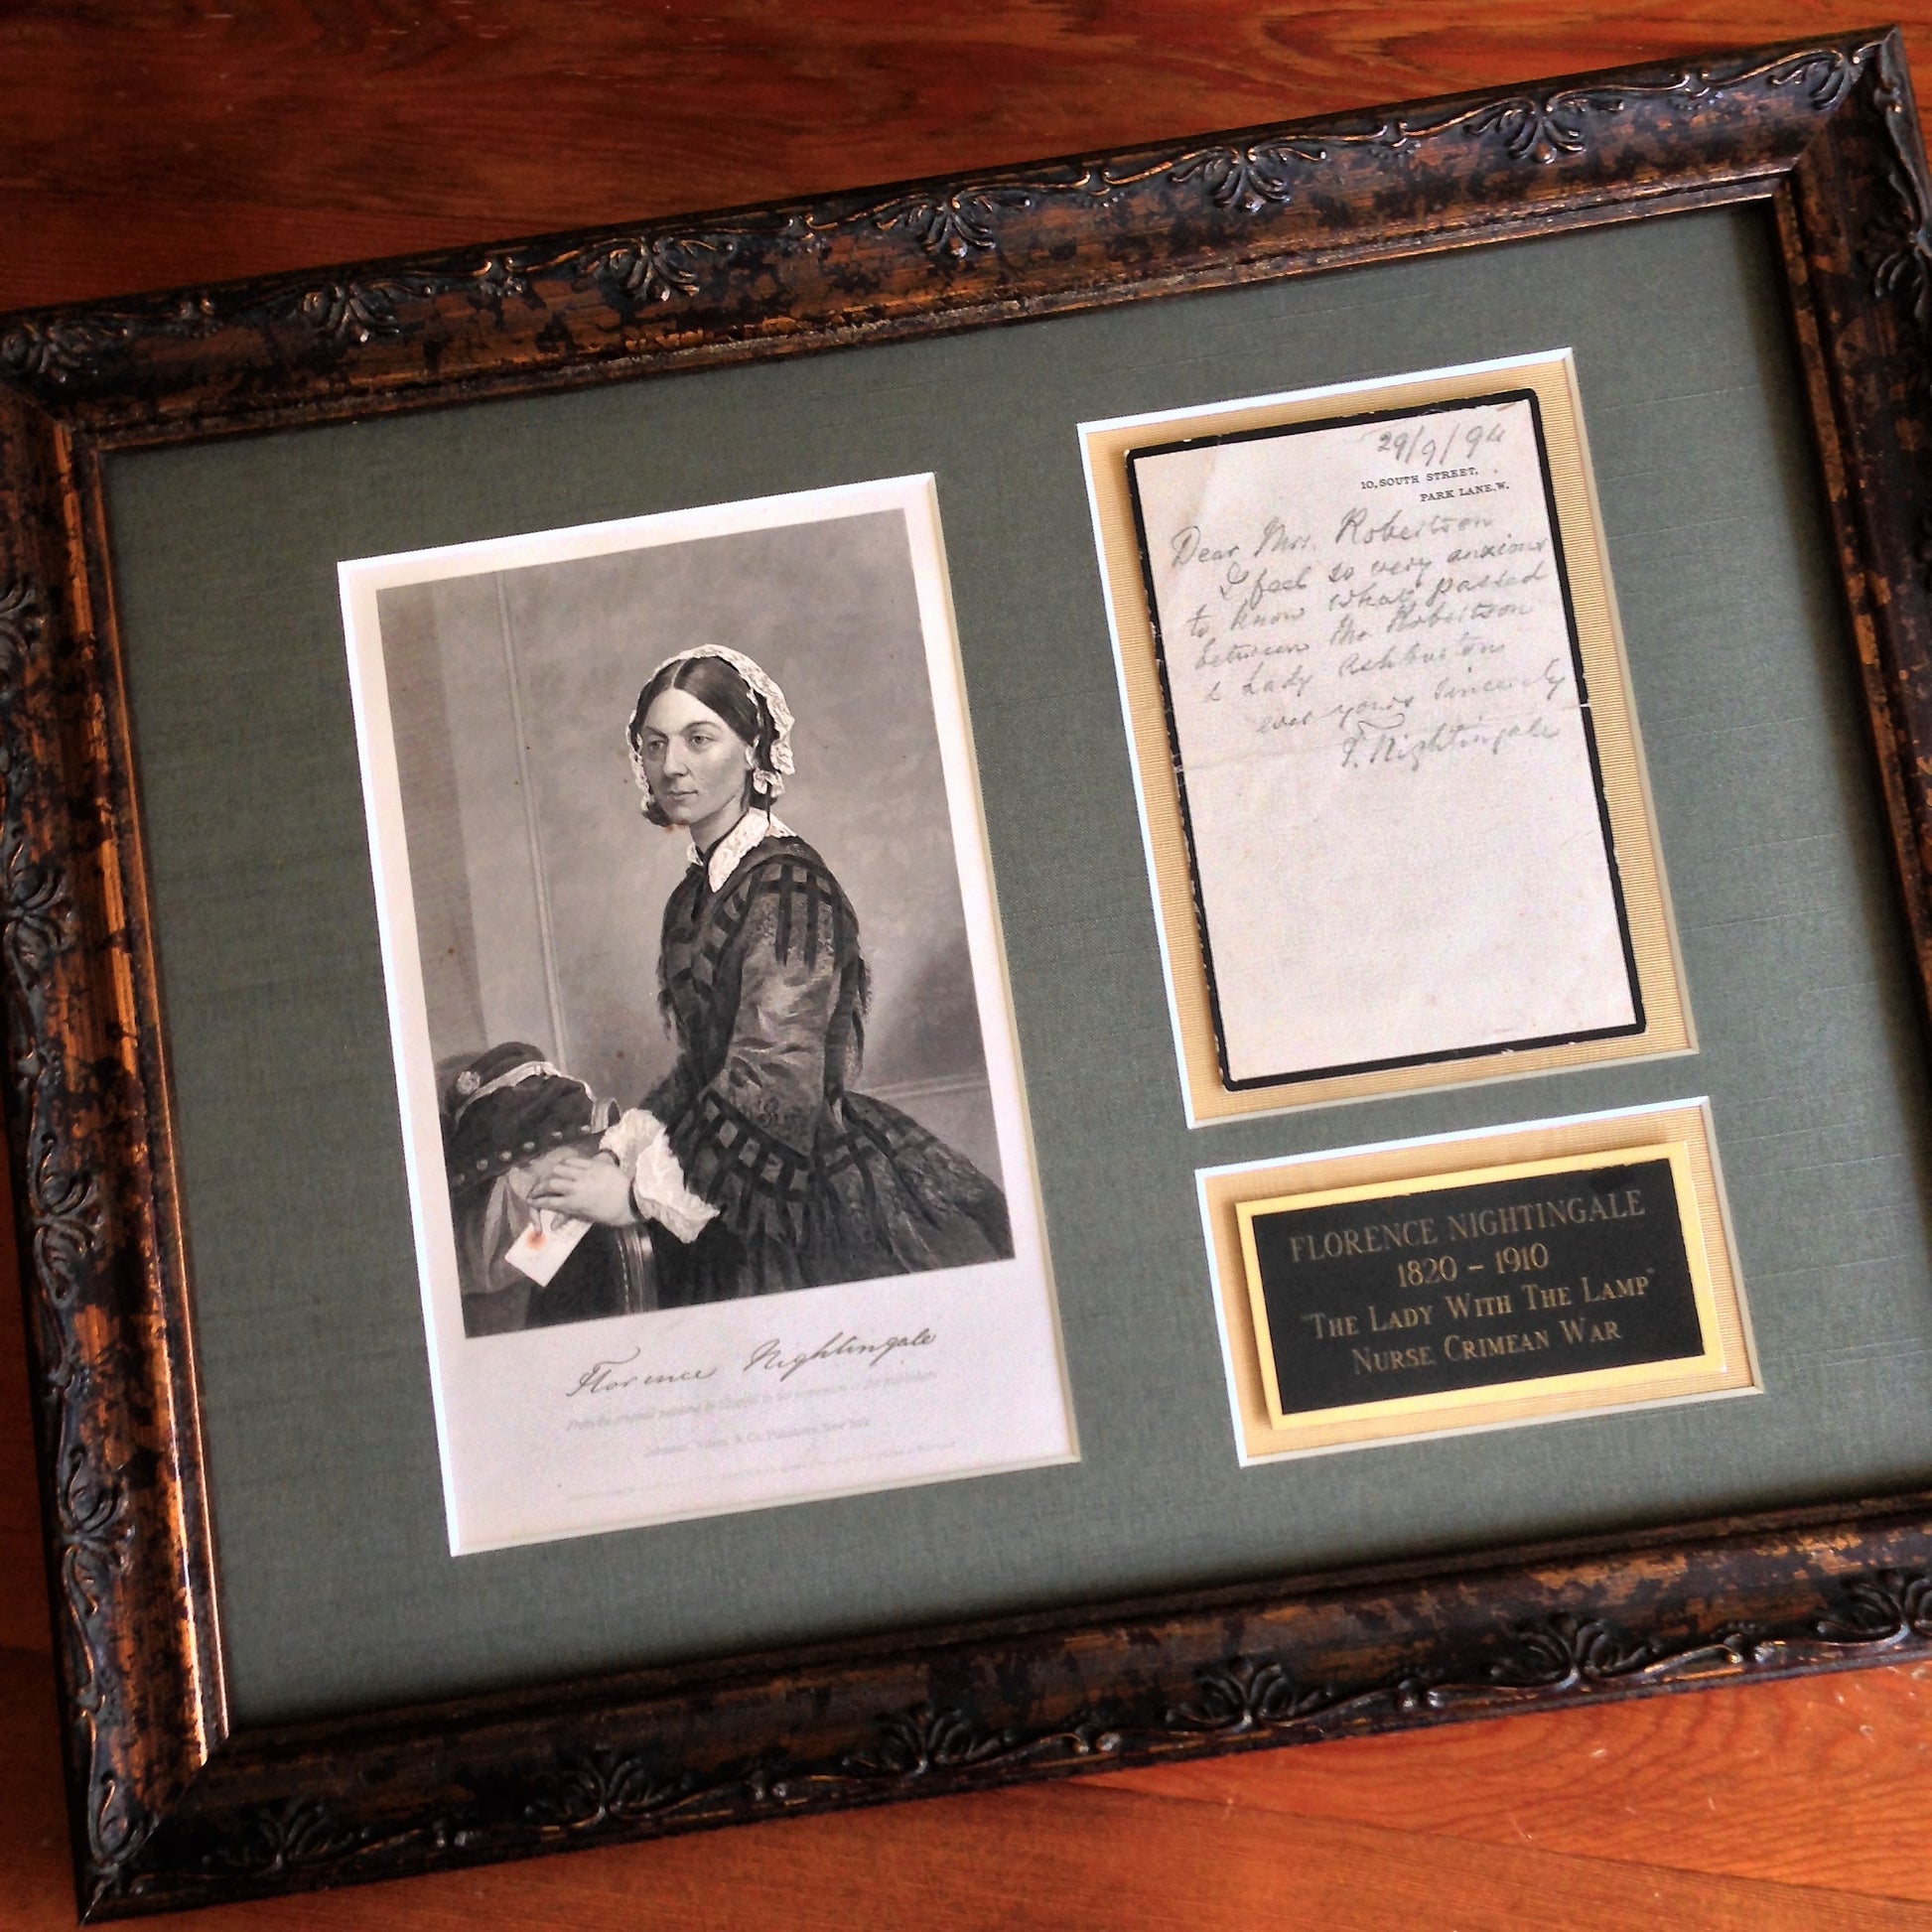 29/9/94
10, SOUTH STREET,
PARK LANE. W.
Dear Mrs. Robertson
I feel so very anxious
to know what passed
between Mr. Robertson
& Lady Ashburton
ever yours sincerely
F. Nightingale
Florence Nightingale
From the original painting by Chappel in the possession of the publishers
Johnson, Wilson & Co. Publishers, New York
FLORENCE NIGHTINGALE
1820 - 1910
"THE LADY WITH THE LAMP"
NURSE CRIMEAN WAR